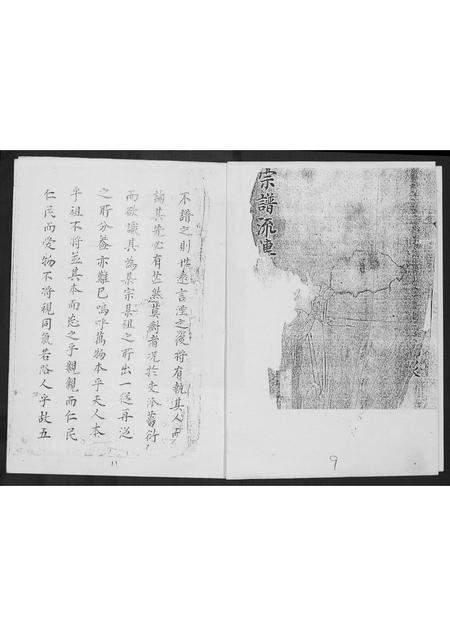 宗譜流
9
不譜之則世遠言湮之後將有執其人而
論其先必有茫然莫對者况於支派蕃衍
而欲識其為某宗某祖之所出一從再從
之所分蓋亦難已嗚呼萬物本乎天人本
乎祖不將並其本而忘之乎親親而仁民
仁民而愛物不將視同氣若路人乎故五
11